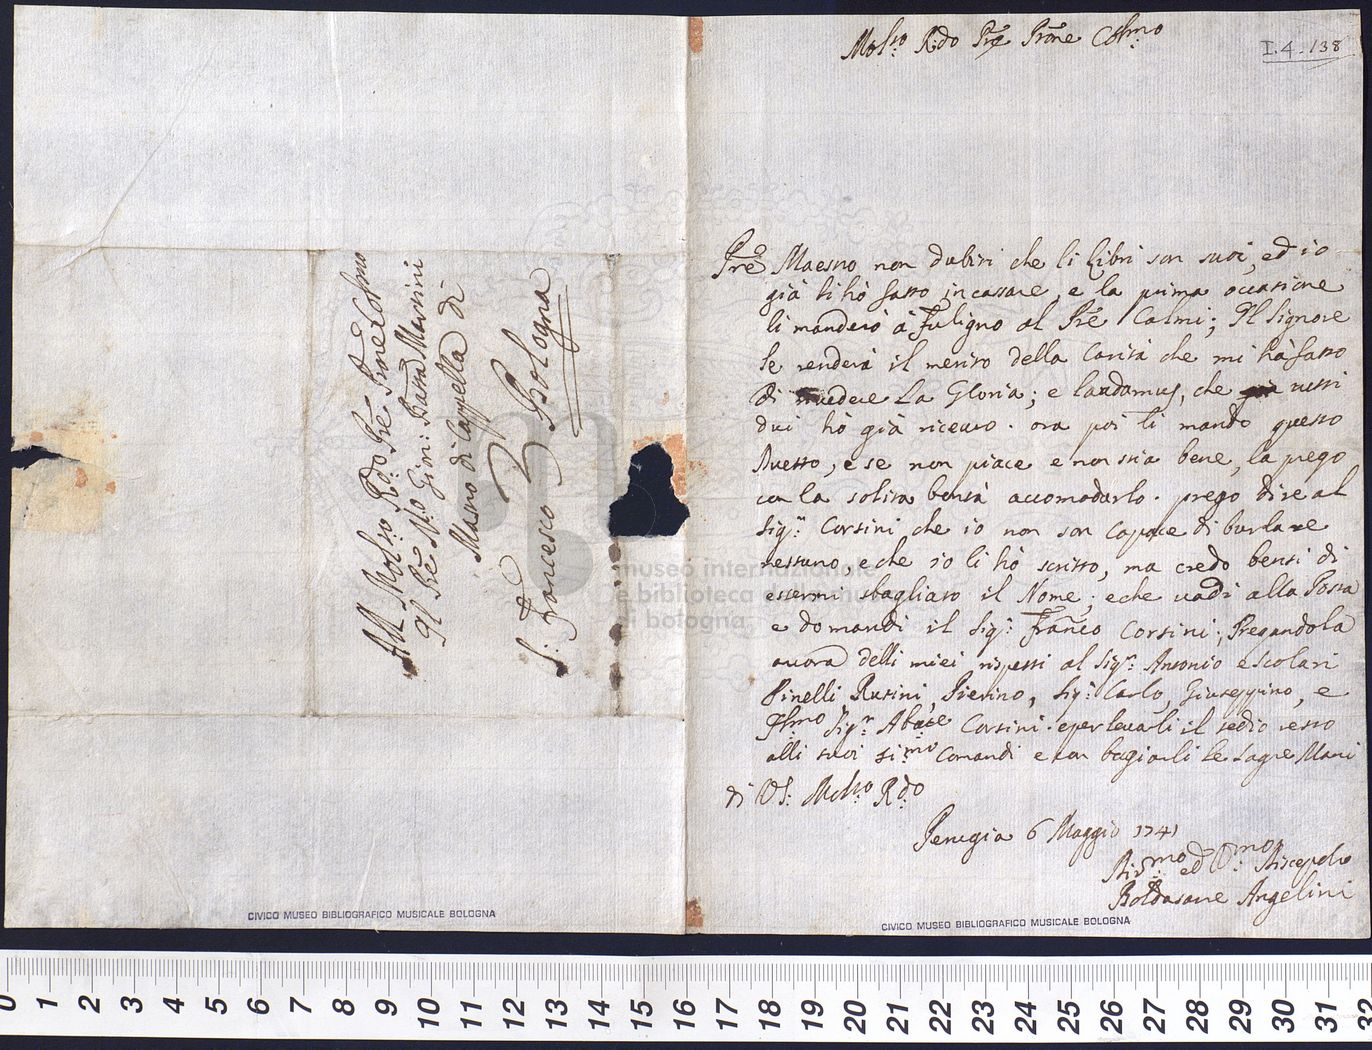 Molto R.do Pre Prone Colmo
I.4.138
Pre Maestro non dubiti che li libri son suoi, ed io
già li hò fatto incassare, e la prima occasione
li manderò à Fuligno al Pre Calmi; Il Signore
le renderà il merito della Carità che mi hà fatto
di rivedere La Gloria; e laudamus, che tutti
dui hò già riceuto. ora poi li mando questo
Duetto, e se non piace e non stia bene, la prego
con la solita bontà accomodarlo. prego dire al
Sig.r Corsini che io non son capace di burlare
nessuno, e che io li hò scritto, ma credo bensi di
essermi sbagliato il Nome; e che vadi alla Posta
e domandi il Sig.r Franco Corsini; Pregandola
ancora delli miei rispetti al Sig.r Antonio e scolari
Pinelli Rutini, Pierino, Sig.r Carlo, Giuseppino, e
Illmo Sig.r Abate Corsini. e per levarli il tedio resto
alli suoi stimo Comandi e con bagiarli le Sagre Mani
di VS. Molto R.do
Perugia 6 Maggio 1741
Div.mo ed O.mo Discepolo
Baldasare Angelini
All Molto R.do Pre Prone Colmo
Il Pre M.o Giov: Batta Martini
Mastro di Cappella di
S. Francesco
Bologna
museo internazionale
e biblioteca della musica
di bologna
CIVICO MUSEO BIBLIOGRAFICO MUSICALE BOLOGNA
CIVICO MUSEO BIBLIOGRAFICO MUSICALE BOLOGNA
0 1 2 3 4 5 6 7 8 9 10 11 12 13 14 15 16 17 18 19 20 21 22 23 24 25 26 27 28 29 30 31 32